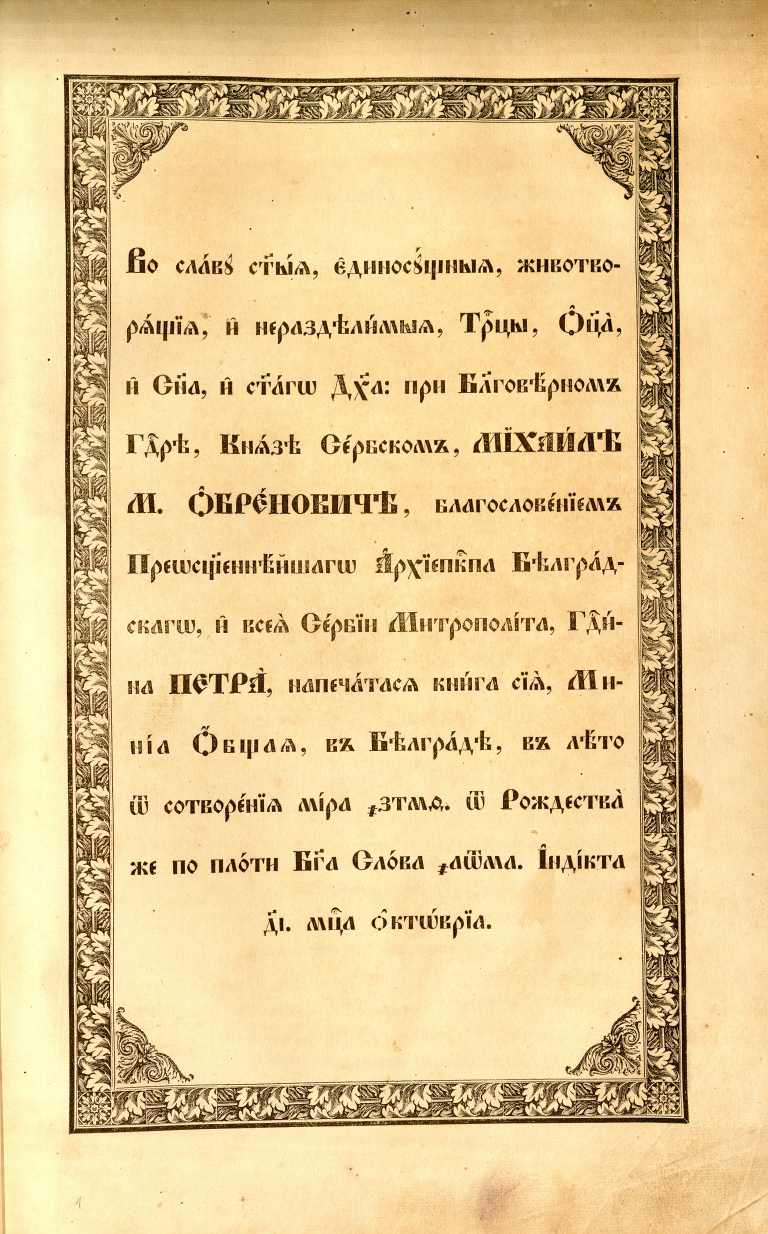 Во сла́вꙋ ст҃ы́ѧ, є҆диносꙋ́щныѧ, животво-
рѧ́щїѧ, и҆ нераздѣли́мыѧ, Трⷪ҇цы, Ѻ҆ц҃а̀,
и҆ Сн҃а, и҆ ст҃а́гѡ Дх҃а: при Бл҃говѣ́рномъ
Гдⷭ҇рѣ, Кнѧ́зѣ Се́рбскомъ, МІ́ХАИ́ЛѢ
М. Ѻ҆БРЕ́НОВИЧѢ, благослове́нїемъ
Преѡсщ҃еннѣ́йшагѡ А҆рхїепкⷭ҇па Бѣлгра́д-
скагѡ, и҆ всеѧ̀ Се́рбїи Митрополі́та, Гдⷭ҇и́-
на ПЕТРА̀, напеча́тасѧ кни́га сїѧ̀, Ми-
ні́а Ѻ҆́бщаѧ, въ Бѣлгра́дѣ, въ лѣ́то
ѿ сотворе́нїѧ мі́ра ҂зтмѳ. ѿ Рождества̀
же по пло́ти Бг҃а Сло́ва ҂аѿма. І҆ндї́кта
д҃і. мцⷭ҇а ѻ҆ктѡ́врїа.